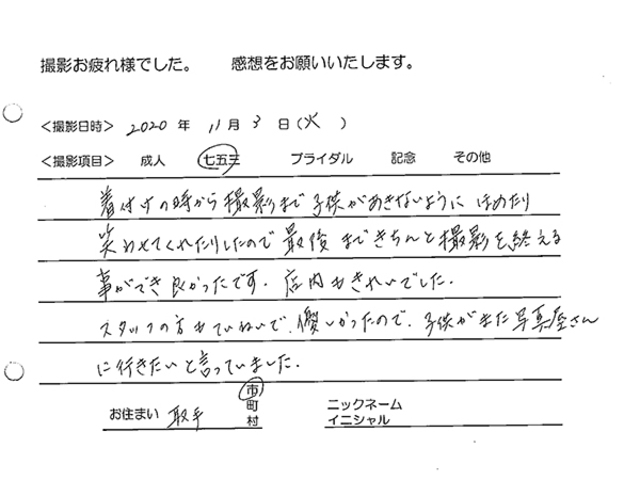 撮影お疲れ様でした。 感想をお願いいたします。
<撮影日時> 2020 年 11 月 3 日 (火 )
<撮影項目> 成人 七五三 ブライダル 記念 その他
着付けの時から撮影まで子供があきないように ほめたり
笑わせてくれたりしたので 最後まできちんと撮影を終える
事ができ良かったです。店内もきれいでした。
スタッフの方もていねいで、優しかったので、子供がまた写真屋さん
に行きたいと言っていました。
お住まい 取手 市 町 村 ニックネーム
イニシャル